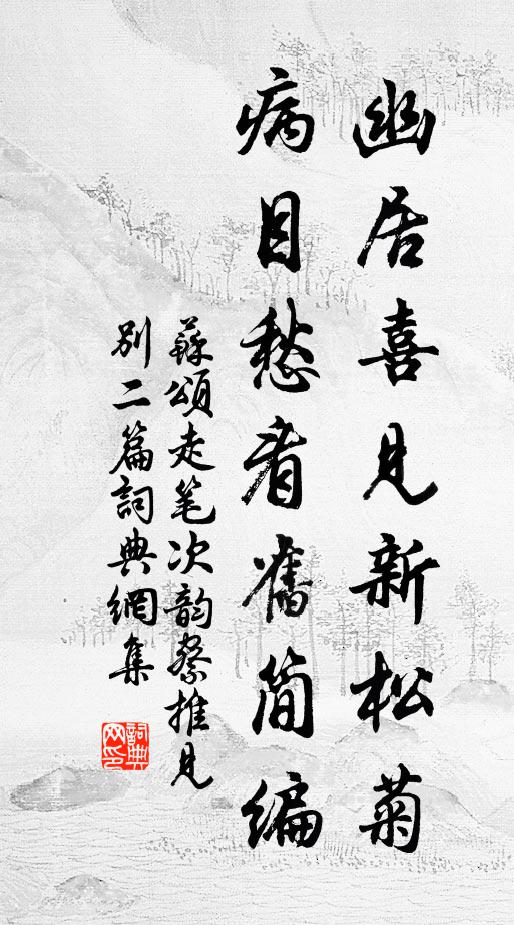 幽居喜見新松菊
病目愁看舊简编
蘇頌走笔次韵蔡推見
别二篇詞典網集
詞典网印